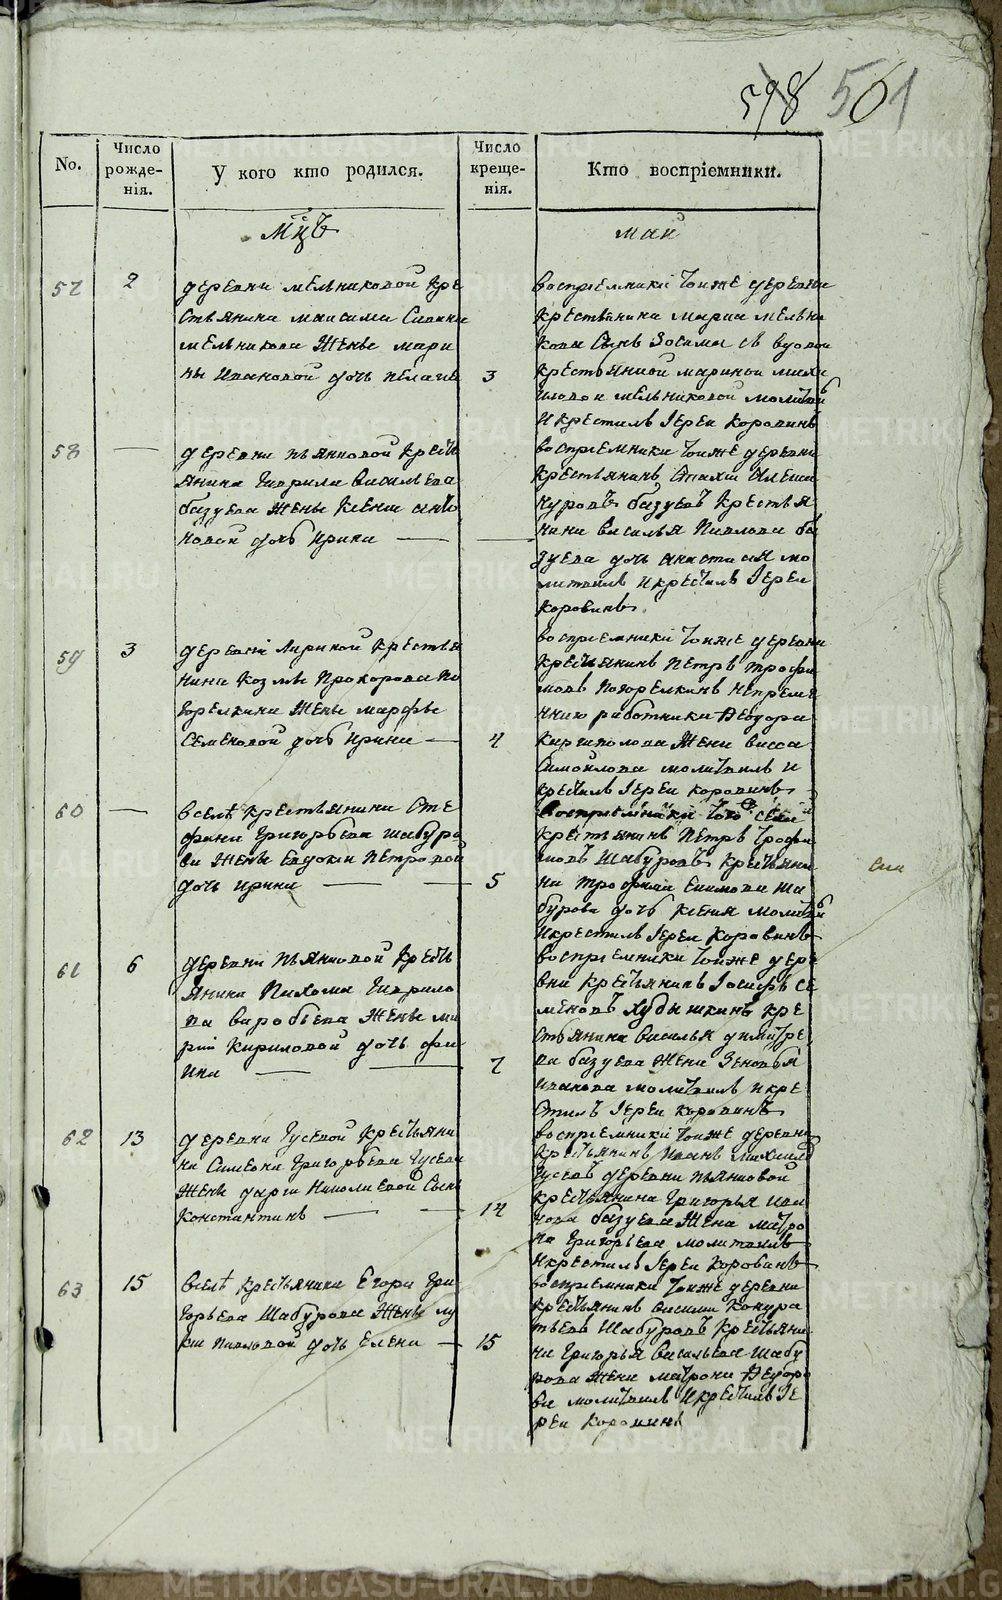 598 501
No.
Число рожде-нія.
У кого кто родился.
Число креще-нія.
Кто воспріемники.
мцъ
маи
57
2
деревни мельниковой кре
стьянина максима Савина
мельникова жены мари
ны Ивановой дочь пелагея
3
воспрiемники тоиже деревни
крестьянина марка мельни
кова сынъ Зосима съ вдовой
крестьянкой мариной михаи
ловой мельниковой молитвъ
и крестилъ Iереи коровинъ
58
деревни пьянковой кресть
янина Гаврила васильева
базуева жены ксении анто
новой дочь ирина
воспрiемники тоиже деревни
крестьянинъ
базуевъ крестья
нина василья павлова ба
зуева дочь анастасия мо
литвилъ и крестилъ Iереи
коровинъ
59
3
деревни Лариной крестья
нина козмы прохорова по
горелкина жены марфы
семеновой дочь ирина
4
воспрiемники тоиже деревни
крестьянинъ петръ трофи
мовъ погорелкинъ
работника Ѳедора
жена васса
самоилова молитвилъ и
крестилъ Iереи коровинъ
60
вселѣ крестьянина Сте
фана Григорьева шабуро
ва жены Евдокии петровой
дочь ирина
5
воспрiемники того села
крестьянинъ петръ трофи
мовъ шабуровъ крестьяни
на трофима екимова ша
бурова дочь ксения молитвъ
и крестилъ Iереи коровинъ
61
6
деревни пьянковой кресть
янина пахома Гаврило
ва варобьева жены ма
рии кириловой дочь фа
ина
7
воспрiемники тоиже дере
вни крестьянинъ Iосифъ се
меновъ хубышкинъ кре
стьянина василья димитре
ва базуева жена зеновья
иванова молитвилъ и кре
стилъ Iереи коровинъ
62
13
деревни Гусевой крестьяни
на Симеона Григорьева Гусева
жены дарьи николаевой сынъ
константинъ
14
воспрiемники тоиже деревни
крестьянинъ иванъ михаил
гусевъ деревни пьянковой
крестьянина Григорья ива
нова базуева жена матро
на Григорьева молитвилъ
и крестилъ Iереи коровинъ
63
15
вселѣ крестьянина Егора Гри
горьева шабурова жены лу
кии павловой дочь Елена
15
воспрiемники тоиже деревни
крестьянинъ василии кондра
тьевъ шабуровъ крестьяни
на Григорья васильева шабу
рова жена матрона Ѳедоро
ва молитвилъ и крестилъ Iе
реи коровинъ
METRIKI.GASU-URAL.RU